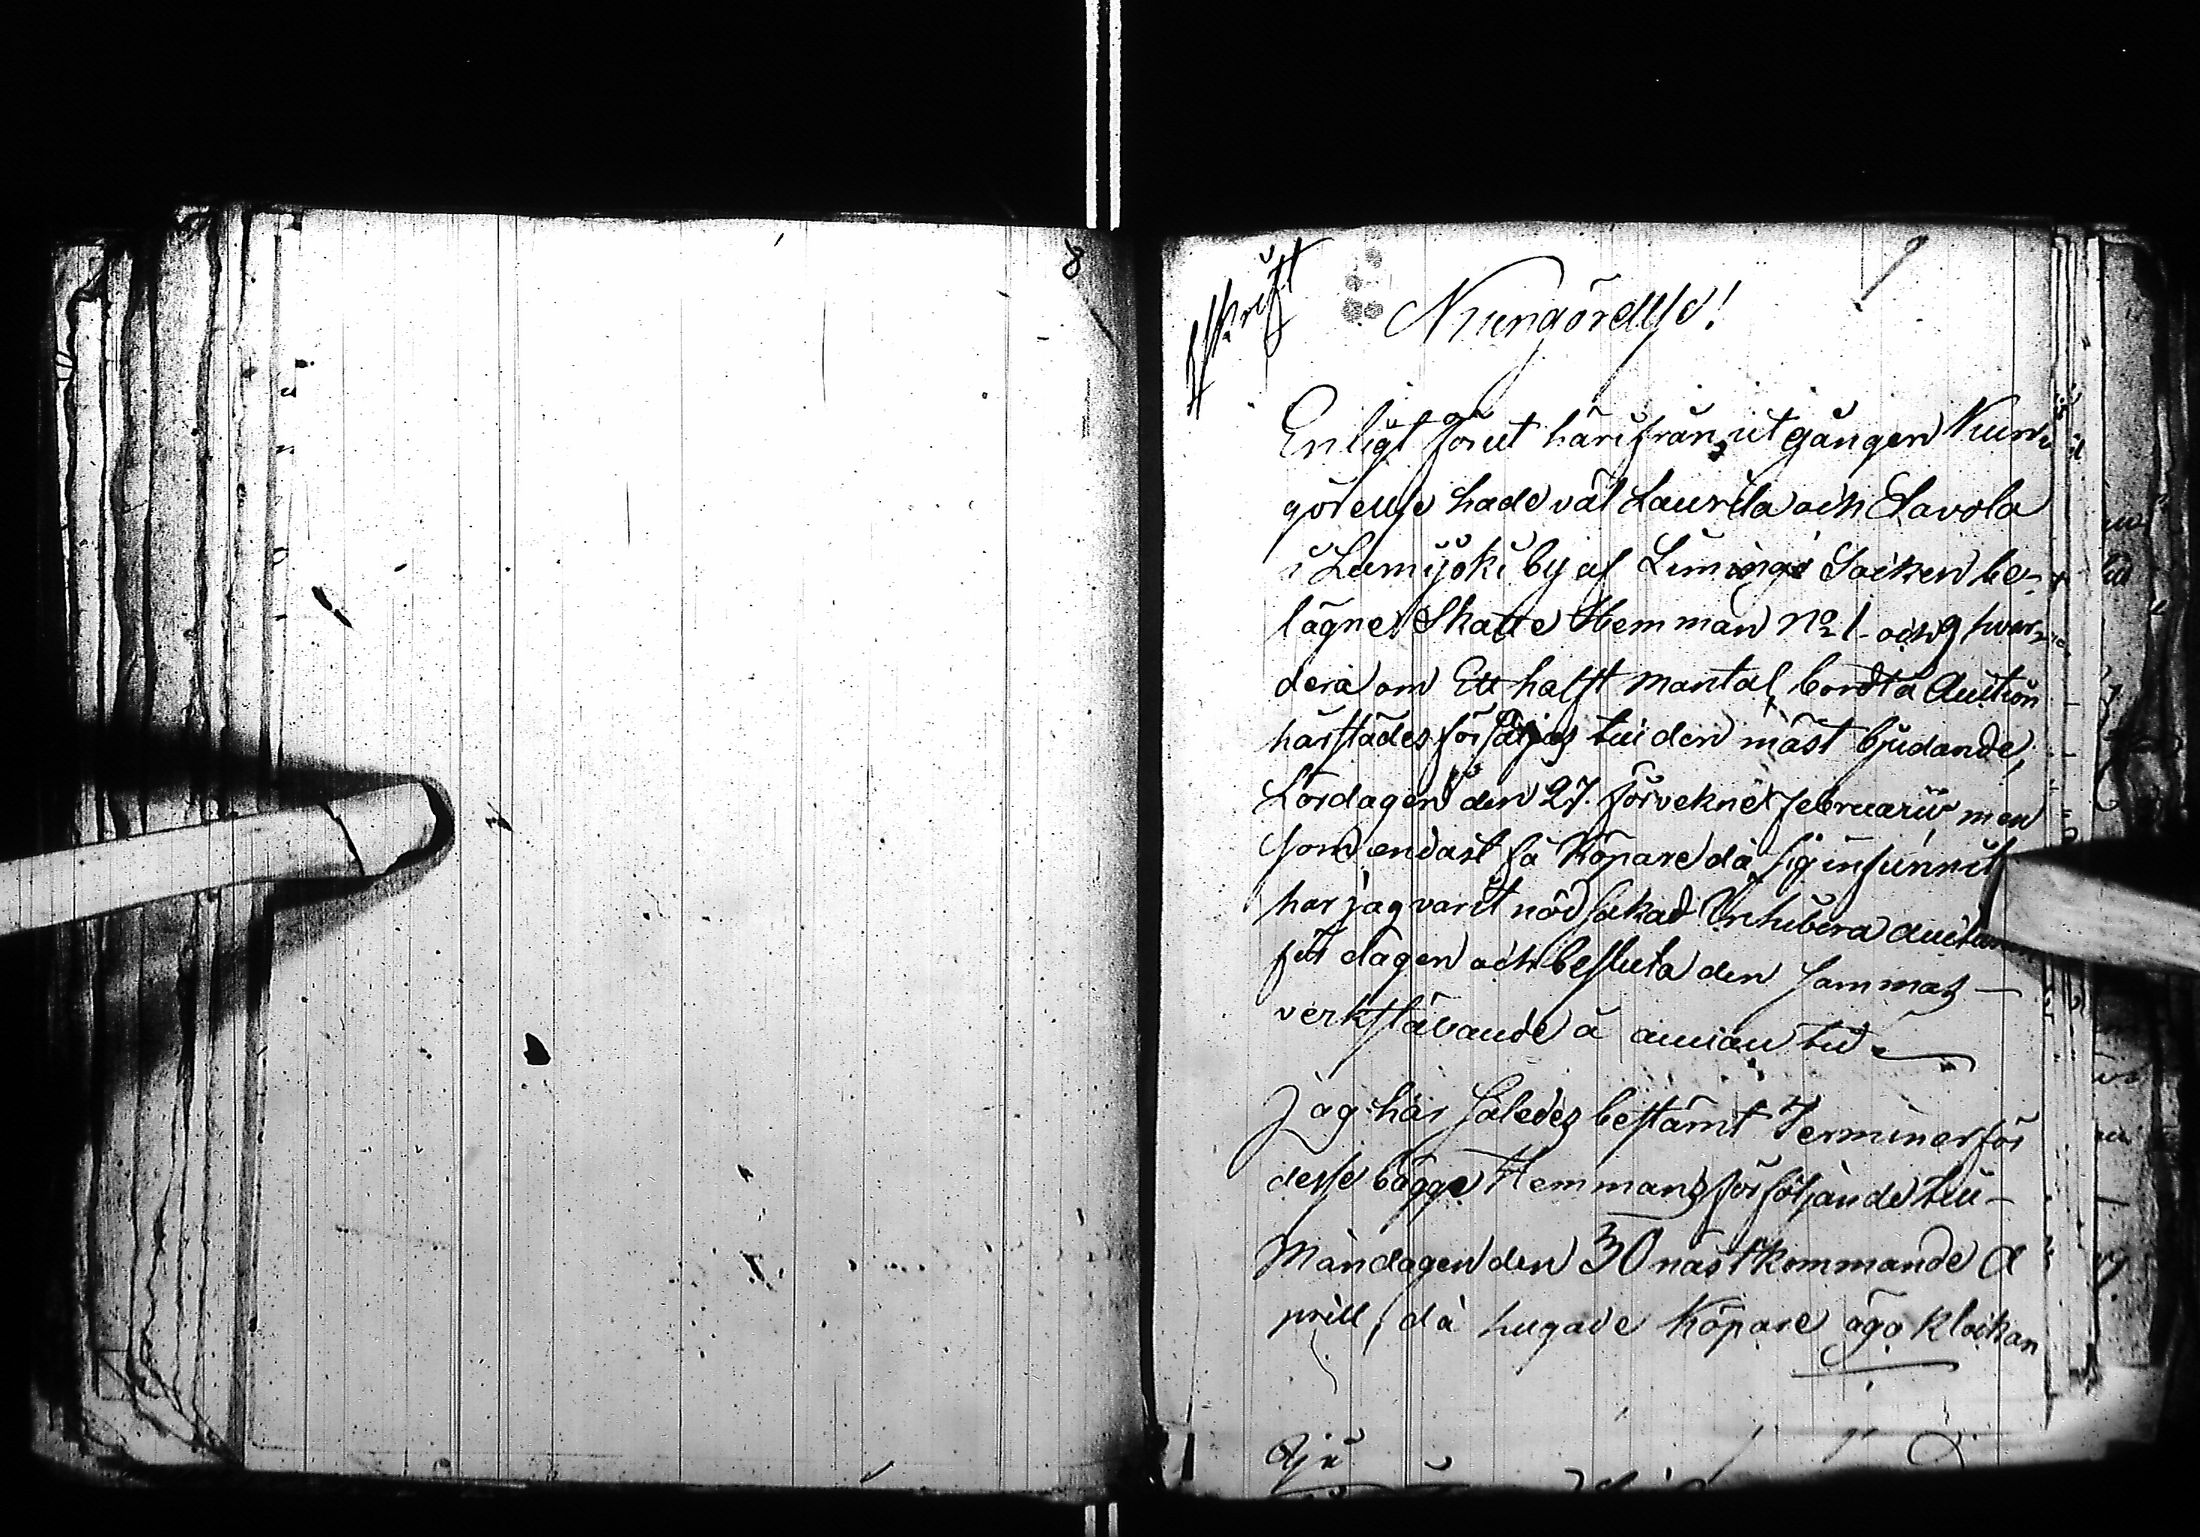 8
Afskrifft
9
Kungörellse!
Enligt förut härifrån utgången Kun-
görellse hade väl Laurila och Savola
i Lumijoki by af Limingo Socken be-
lägne Skatte Hemman No 1 och 9 hvar-
dera om Ett halft mantal, bordt å Auction
härstädes försäljas till den mäst bjudande,
Lördagen den 27. förvekne Februarii men
som endast få Köpare då sig infunnit
har jag varit nödsakad Inhibera auction
för dagen och besluta den sammas
verkställande å annan tid
Jag har således bestämt Terminer för
desse bägge Hemmans försöljande till
Måndagen den 30 nästkommande A
prill, då hugade Köpare äga klockan